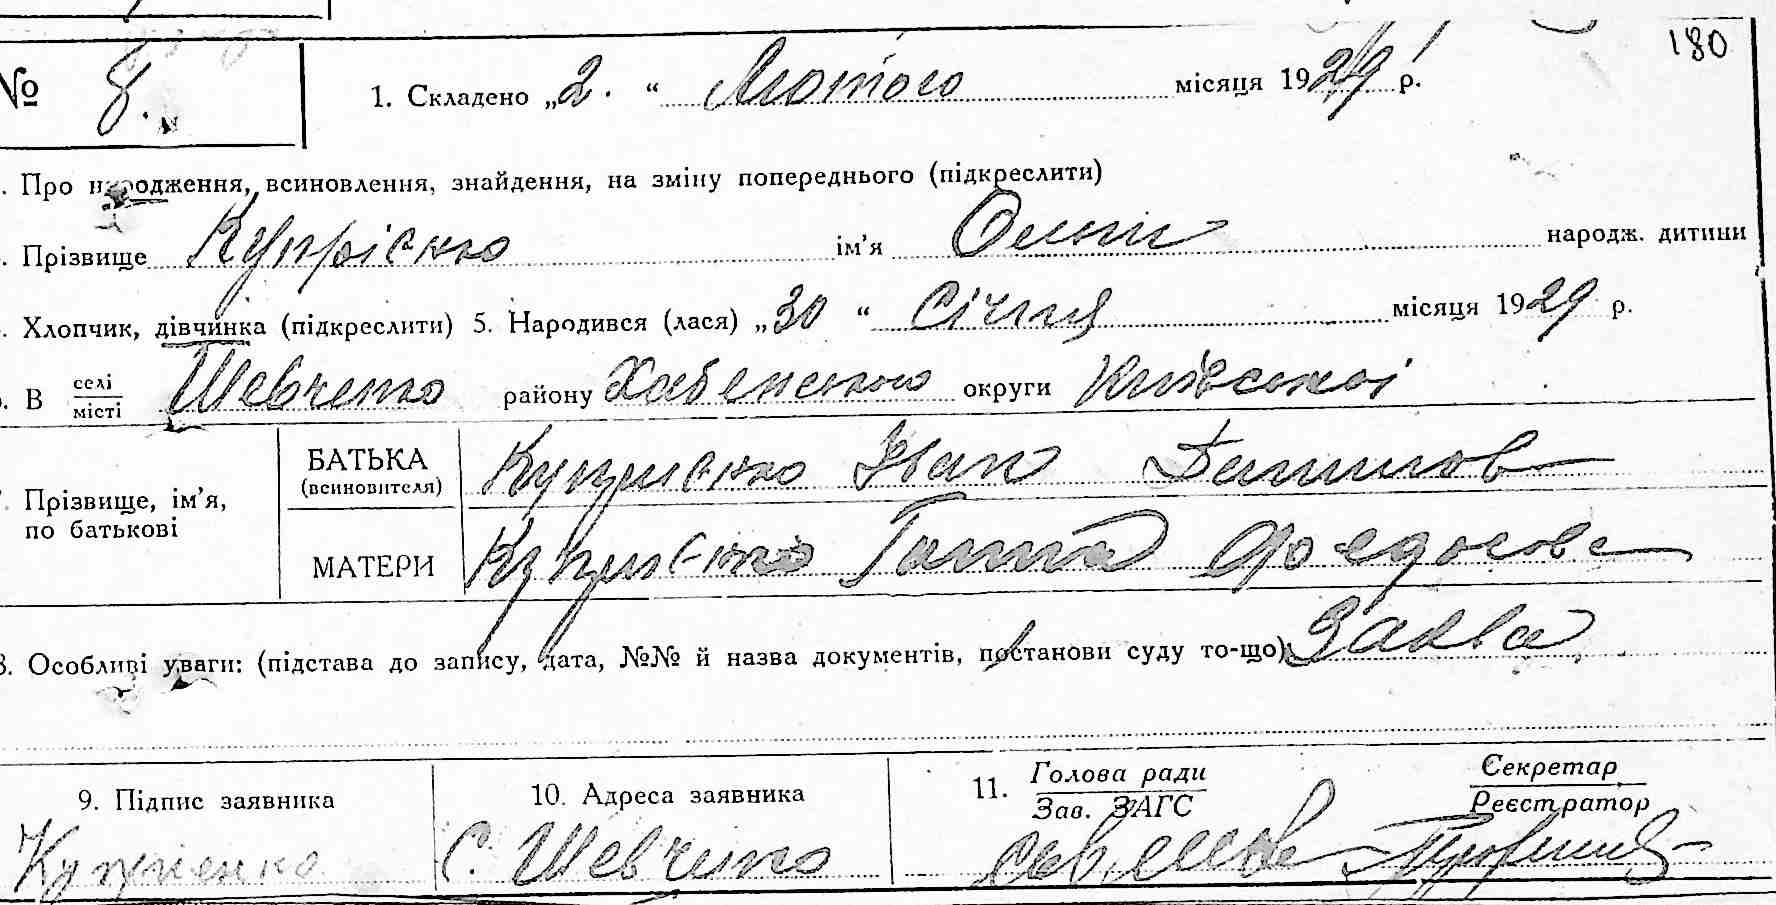 180
№ 8. 1. Складено „2.“ Лютого місяця 1929 р.
. Про народження, всиновлення, знайдення, на зміну попереднього (підкреслити)
. Прізвище Купрієнко ім’я народж. дитини
. Хлопчик, дівчинка (підкреслити) 5. Народився (лася) „30“ Січня місяця 1929 р.
. В селі місті Шевченко району Хабенського округи Київської
Прізвище, ім’я, по батькові
БАТЬКА (всиновителя) Куприєнко Іван Данилов
МАТЕРИ Куприєнко Ганна Федосова
8. Особливі уваги: (підстава до запису, дата, №№ й назва документів, постанови суду то-що) Заява
9. Підпис заявника 10. Адреса заявника 11. Голова ради Зав. ЗАГС Секретар Реєстратор
Куприенко С. Шевченко